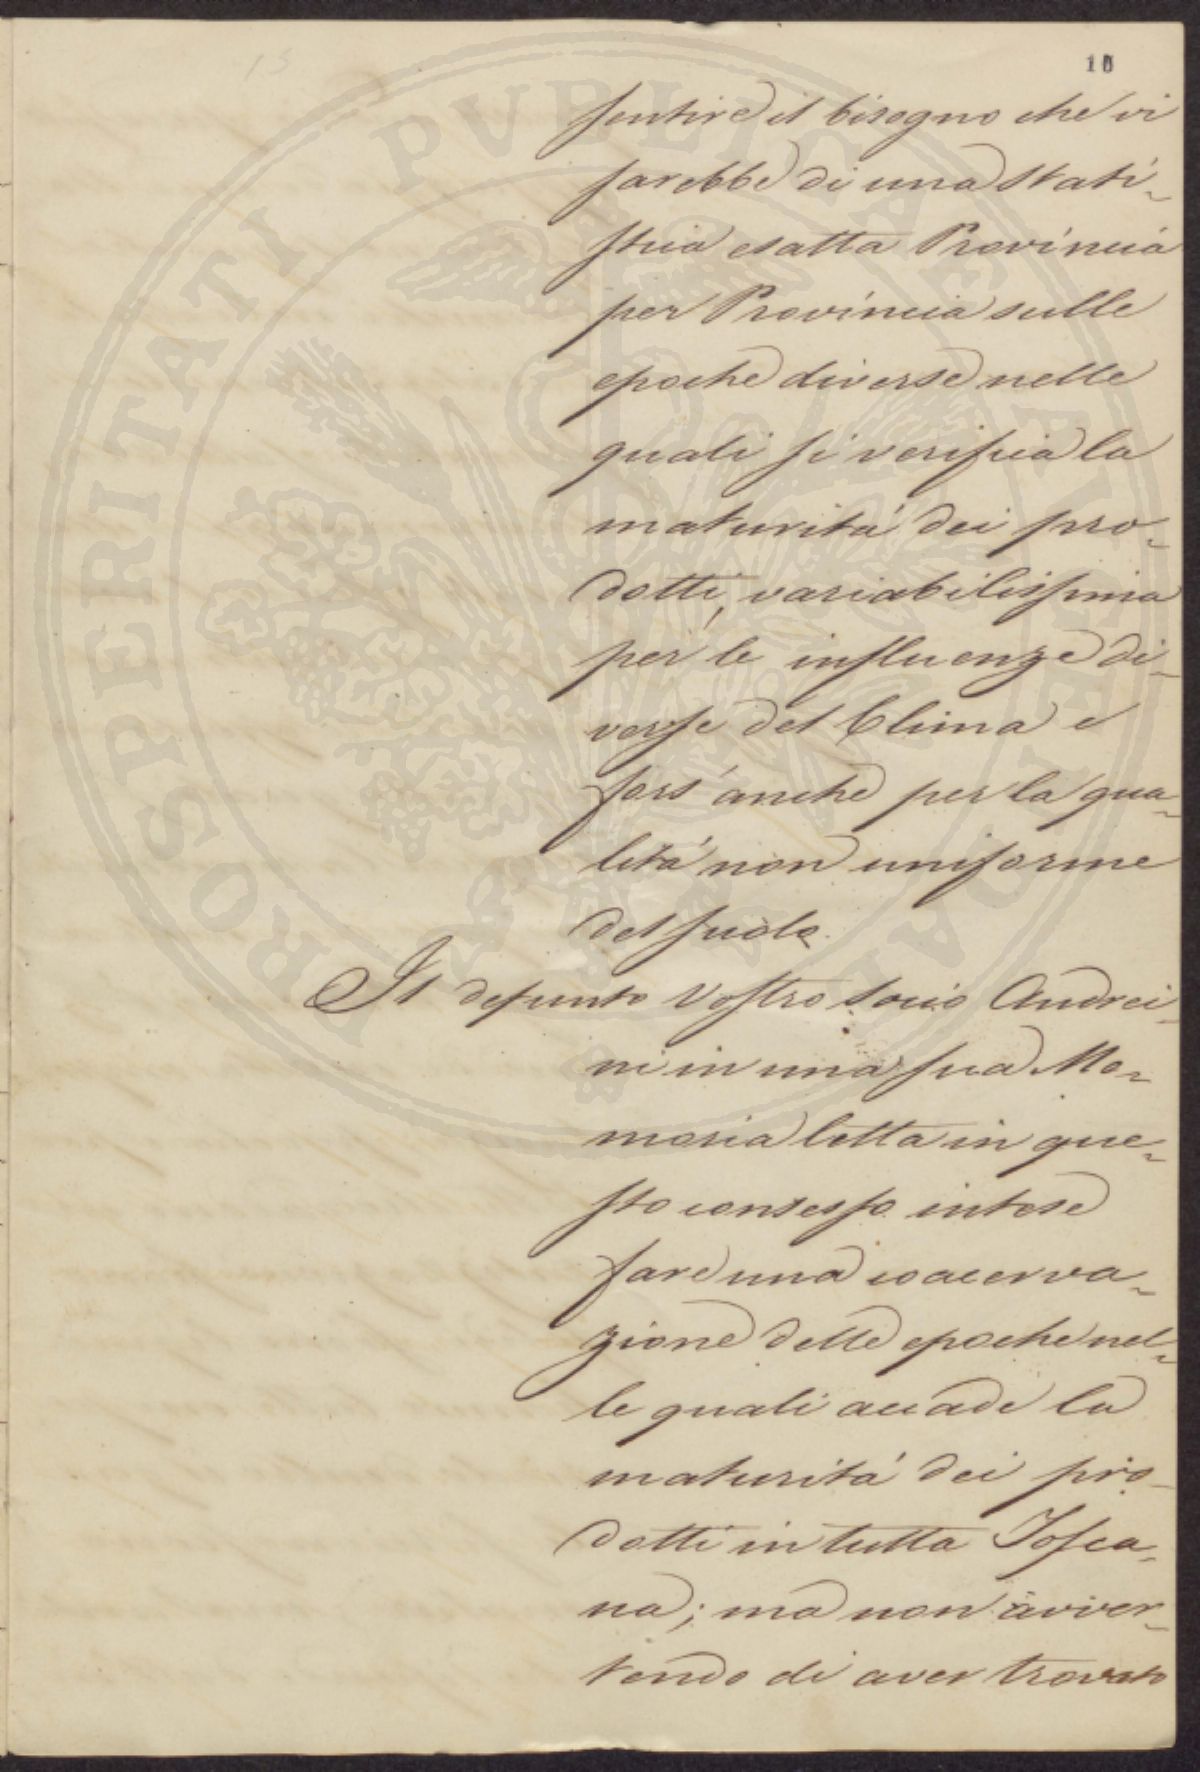 13
10
sentire il bisogno che vi
sarebbe di una stati-
stica esatta Provincia
per Provincia sulle
epoche diverse nelle
quali si verifica la
maturitá dei pro-
dotti, variabilissima
per le influenze di-
verse del Clima e
fors'anche per la qua-
litá non uniforme
del suolo.
Il defunto Vostro Socio Andrei-
ni in una sua Me-
moria letta in que-
sto consesso intese
fare una coacerva-
zione delle epoche nel-
le quali accade la
maturitá dei pro-
dotti in tutta Tosca-
na; ma non avver-
tendo di aver trovato
PROSPERITATI PVBLICAE AVGENDAE